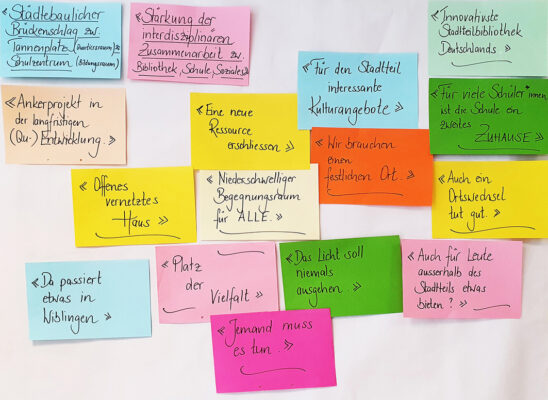 «Städtebaulicher
Brückenschlag zw.
Tannenplatz (Quartiersraum) &
Schulzentrum (Bildungsraum)»
«Stärkung der
interdisziplinären
Zusammenarbeit zw.
Bibliothek, Schule, Soziales»
«Innovativste
Stadtteilbibliothek
Deutschlands»
«Für den Stadtteil
interessante
Kulturangebote»
«Ankerprojekt in
der langfristigen
(Qu.-) Entwicklung.»
«Eine neue
Ressource
erschliessen»
«Für viele Schüler*innen
ist die Schule ein
zweites
ZUHAUSE»
«Wir brauchen
einen
festlichen Ort.»
«Offenes
vernetztes
Haus»
«Niederschwelliger
Begegnungsraum
für ALLE.»
«Auch ein
Ortswechsel
tut gut.»
«Da passiert
etwas in
Wiblingen»
«Platz
der
Vielfalt»
«Das Licht soll
niemals
ausgehen.»
«Auch für Leute
ausserhalb des
Stadtteils etwas
bieten?»
«Jemand muss
es tun.»